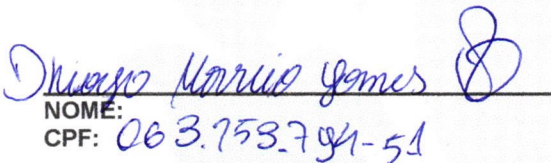 Dhiago Marcio Gomes
NOME:
CPF: 063.759.794-51